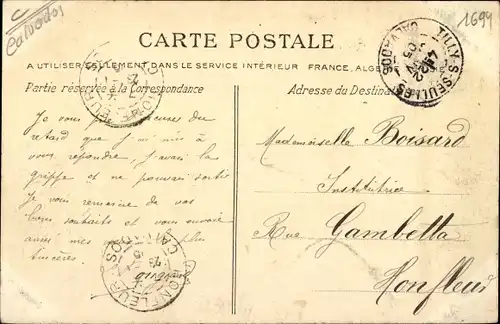 Calvados
1699
CARTE POSTALE
A UTILISER SEULEMENT DANS LE SERVICE INTÉRIEUR FRANCE, ALGÉRIE
Partie réservée à la Correspondance
Adresse du Destinat
TILLY-S-SEULLES
CALVADOS
HONFLEUR
Je vous excuses du
retard que j'ai mis à
vous répondre, j'avais la
grippe et ne pouvais sortir
Je vous remercie de vos
bons souhaits et vous envoie
aussi mes plus
sincères.
HONFLEUR
CALVADOS
Mademoiselle Boisard
Institutrice
Rue Gambetta
Honfleur